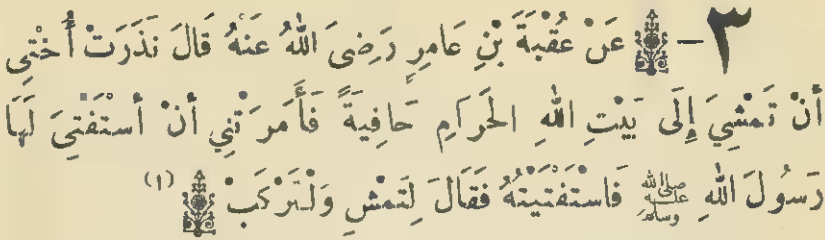 ٣- عَنْ عُقْبَةَ بْنِ عَامِرٍ رَضِىَ اللهُ عَنْهُ قَالَ نَذَرَتْ أُخْتِى
أَنْ تَمْشِيَ إِلَى بَيْتِ اللهِ الحَرَامِ حَافِيَةً فَأَمَرَتْنِي أَنْ أَسْتَفْتِىَ لَهَا
رَسُولَ اللهِ ﷺ فَاسْتَفْتَيْتُهُ فَقَالَ لِتَمْشِ وَلْتَرْكَبْ (١)